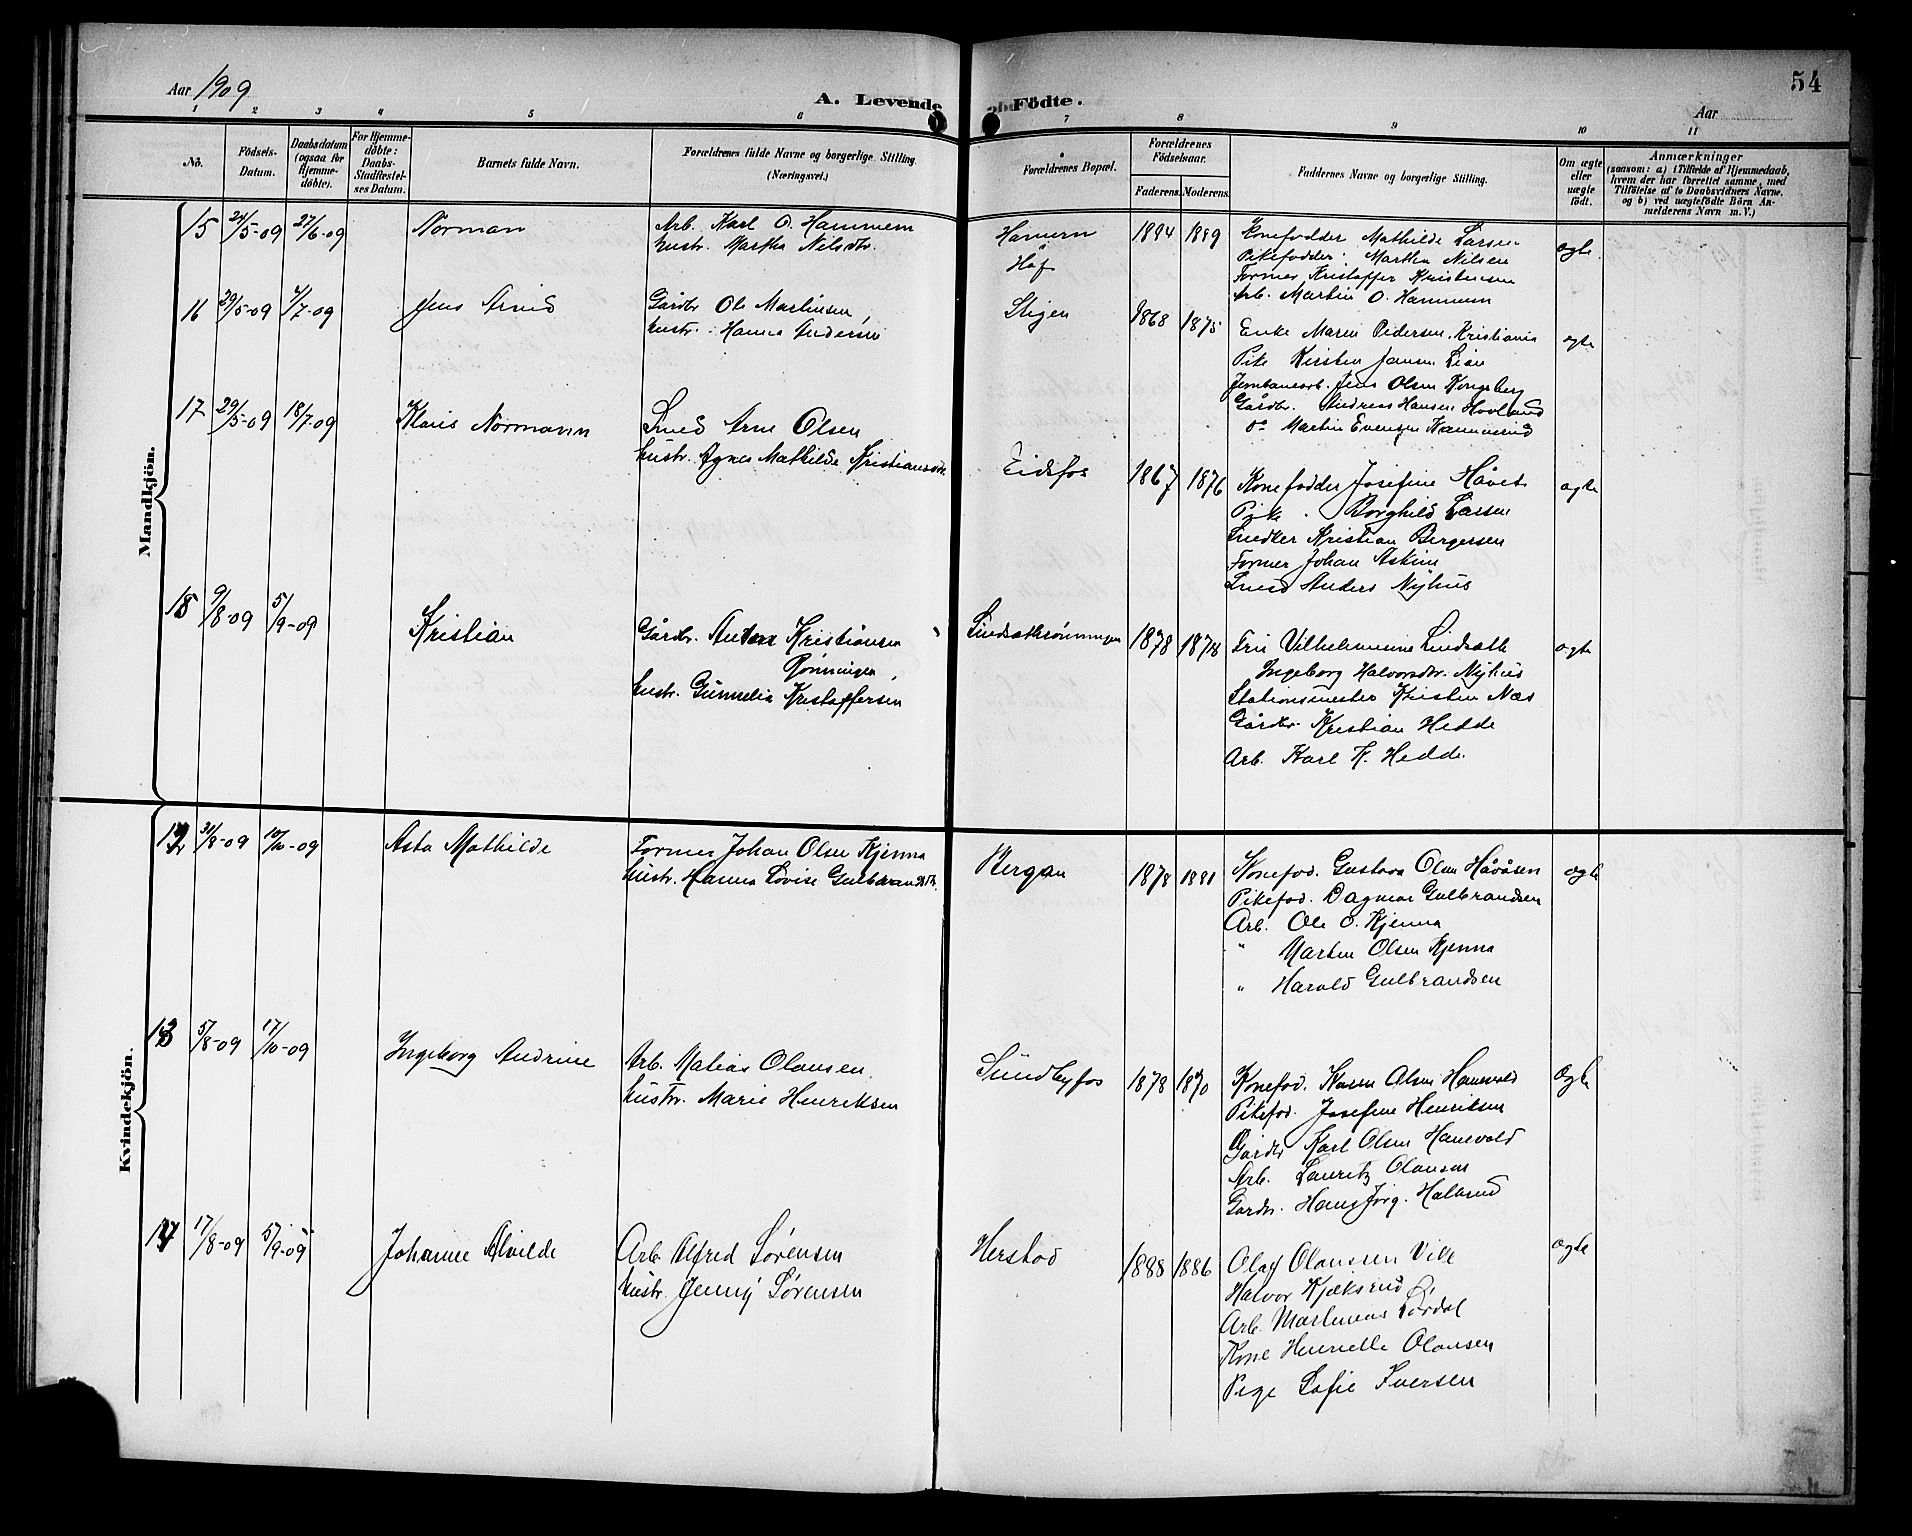 Aar 1909
A. Levende Födte.
Aar
54
1 2 3 4 5 6 7 8 9 10 11
No.
Födsels-Datum.
Daabsdatum (ogsaa for Hjemmedöbte).
For Hjemmedöbte: Daabs-Stadfæstelses Datum.
Barnets fulde Navn.
Forældrenes fulde Navne og borgerlige Stilling. (Næringsvei.)
Forældrenes Bopæl.
Forældrenes Födselsaar.
Faderens. Moderens.
Faddernes Navne og borgerlige Stilling.
Om ægte eller uægte födt.
Anmærkninger
(saasom: a) i Tilfælde af Hjemmedaab, hvem der har forrettet samme, med Tilföielse af to Daabsvidners Navne. og b) ved uægtefödte Börn Anmelderens Navn m. V.)
Mandkjön.
15 24/5-09 27/6-09 Norman
Arb. Karl O. Hammern
hustr. Martha Nilsdtr.
Hamern
Hof
1884 1889
Konefadder Mathilde Larsen
Pikefadder Martha Nilsen
Former Kristoffer Kristensen
Arb. Martin O. Hammern
ægte
16 29/5-09 4/7-09 Jens Arvid
Gårdbr. Ole Martinsen
hustr. Hanna Andersen
Stigen
1868 1875
Enke Maren Pedersen, Kristiania
Pike Kirsten Jansen Lien
Jernbanearb. Jens Olsen Kongsberg
Gårdbr. Andreas Hansen Hovland
do Martin Evensen
ægte
17 29/5-09 18/7-09 Klaus Normann
Smed Arne Olsen
hustr. Agnes Mathilde Kristiansdtr.
Eidsfos
1867 1876
Konefadder Josefine Håvet
Pike Borghild Larsen
Snedker Kristian Bergersen
Former Johan Askim
Smed Anders Nyhus
ægte
18 9/8-09 5/9-09 Kristian
Gårdbr. Anders Kristiansen
Rønningen,
hustr. Gunnelia Kristoffersen
Lindsetkrønningen
1878 1878
Fru Vilhelmine Lindsæth
Ingeborg Halvorsdtr. Nyhus
Stationsmester Kristen Næs
Gårdbr. Kristian Hedde
Arb. Karl K. Hedde.
ægte
Kvindekjön.
12 31/8-09 10/10-09 Asta Mathilde
Former Johan Olsen Kjenna
hustr. Hanna Lovise Gulbrandsdtr.
Bergan
1878 1881
Konefod. Gustava Olsen Håvåsen
Pikefod. Dagmar Gulbrandsen
Arb. Ole O. Kjenna
" Marten Olsen Kjenna
" Harald Gulbrandsen
ægte
13 5/8-09 17/10-09 Ingeborg Andrine
Arb. Matias Olausen
hustr. Marie Henriksen
Sundbyfos
1878 1870
Konefod. Karen Olsen Hanevold
Pikefod. Josefine Henriksen
Gårdbr Karl Olsen Hanevold
Arb. Lauritz Olausen
Gårdbr. Hans Jørg. Halsrud
ægte
14 17/8-09 5/9-09 Johanne Alvilde
Arb. Alfred Sørensen
hustr. Jenny Sørensen
Herstad
1888 1886
Olaf Olaussen Vike
Halvor Kjeksrud
Arb. Martinius Sørdal
Kone Henriette Olausen
Pige Sofie Iversen
ægte